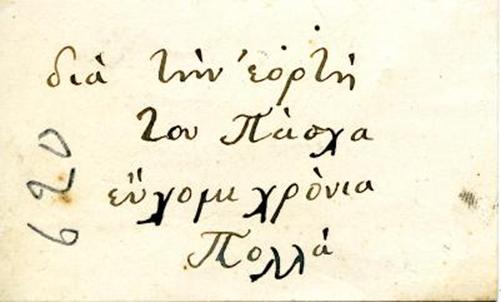 διὰ τὴν ἑορτὴ
του Πάσχα
εὔχομι χρόνια
Πολλά
620